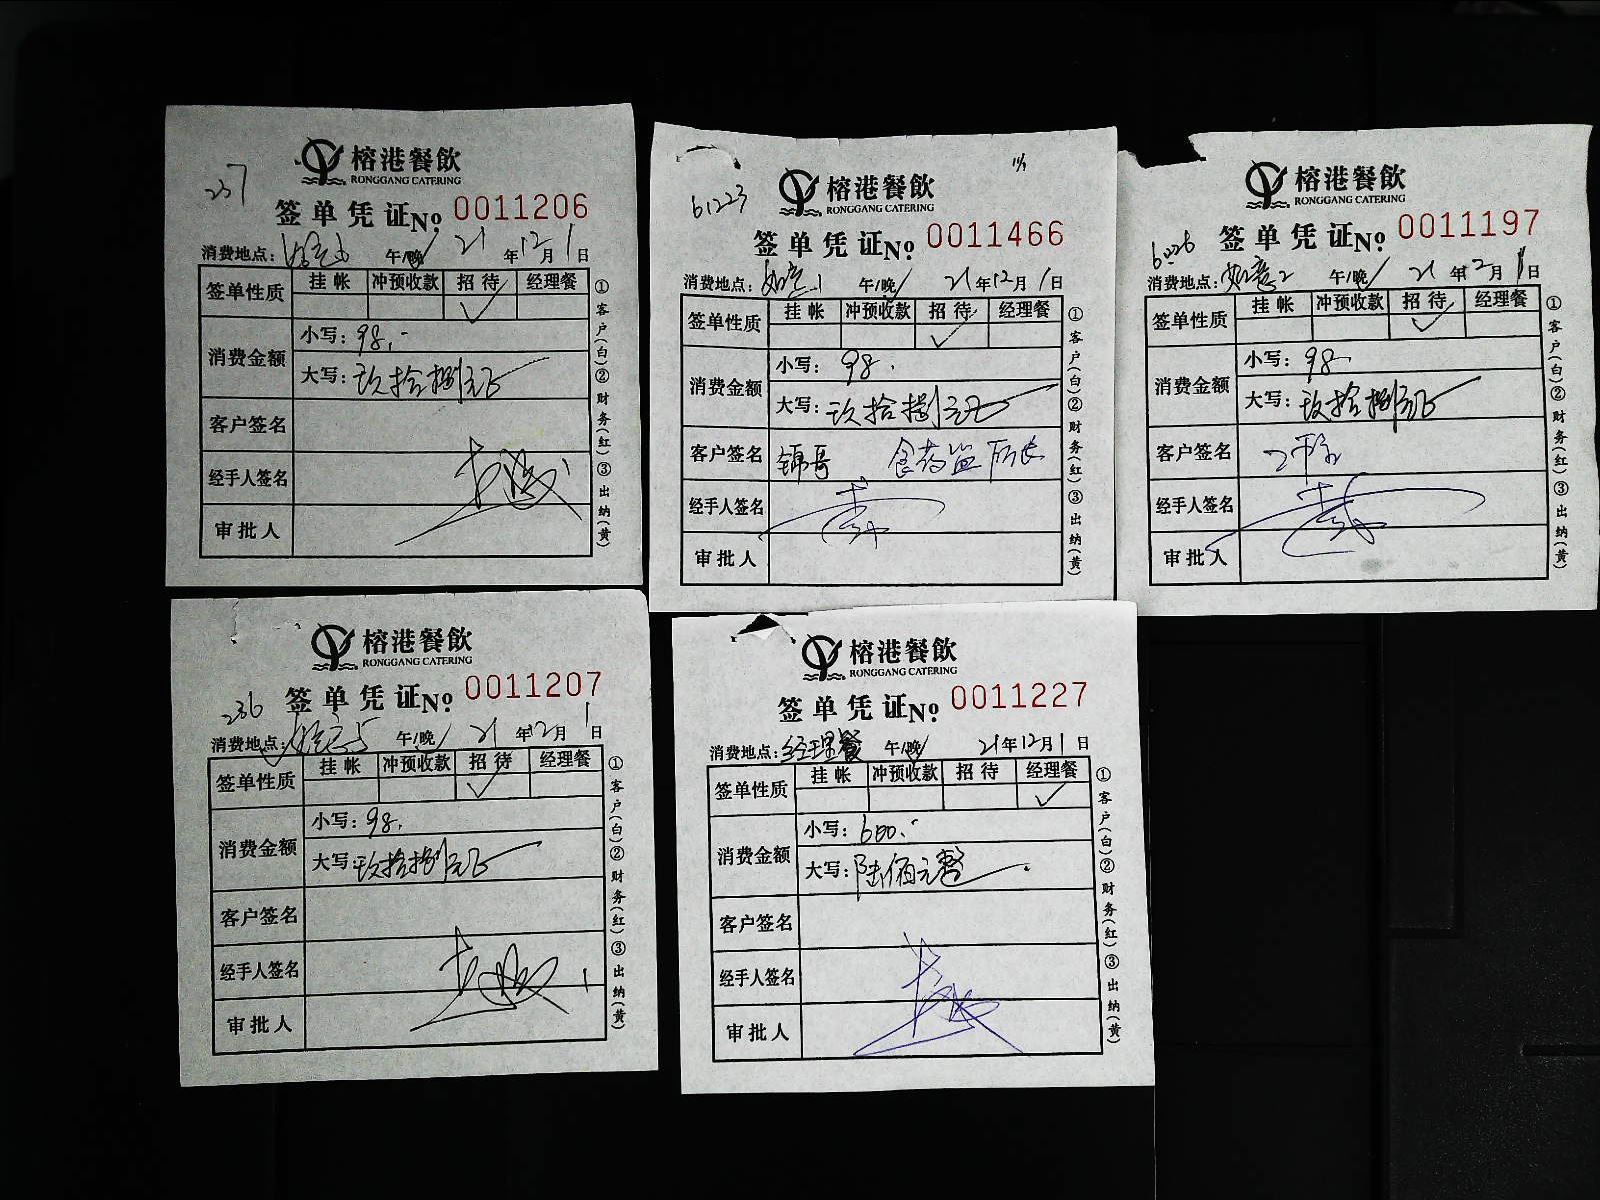 榕港餐飲
RONGGANG CATERING
237
签单凭证No. 0011206
消费地点: 午/晚 21年12月1日
签单性质 挂帐 冲预收款 招待 经理餐
✓
消费金额 小写: 98.-
大写: 玖拾捌元正
客户签名
经手人签名
审批人
①客户(白)②财务(红)③出纳(黄)
榕港餐飲
RONGGANG CATERING
61223
签单凭证No. 0011466
消费地点: 如意1 午/晚 21年12月1日
签单性质 挂帐 冲预收款 招待 经理餐
✓
消费金额 小写: 98.
大写: 玖拾捌元正
客户签名 锦哥 食药监所长
经手人签名
审批人
①客户(白)②财务(红)③出纳(黄)
榕港餐飲
RONGGANG CATERING
签单凭证No. 0011197
消费地点: 如意2 午/晚 21年12月1日
签单性质 挂帐 冲预收款 招待 经理餐
✓
消费金额 小写: 98.
大写: 玖拾捌元正
客户签名
经手人签名
审批人
①客户(白)②财务(红)③出纳(黄)
榕港餐飲
RONGGANG CATERING
236
签单凭证No. 0011207
消费地点: 如意5 午/晚 21年12月1日
签单性质 挂帐 冲预收款 招待 经理餐
✓
消费金额 小写: 98.
大写: 玖拾捌元正
客户签名
经手人签名
审批人
①客户(白)②财务(红)③出纳(黄)
榕港餐飲
RONGGANG CATERING
签单凭证No. 0011227
消费地点: 经理餐 午/晚 21年12月1日
签单性质 挂帐 冲预收款 招待 经理餐
✓
消费金额 小写: 600.-
大写: 陆佰元整
客户签名
经手人签名
审批人
①客户(白)②财务(红)③出纳(黄)